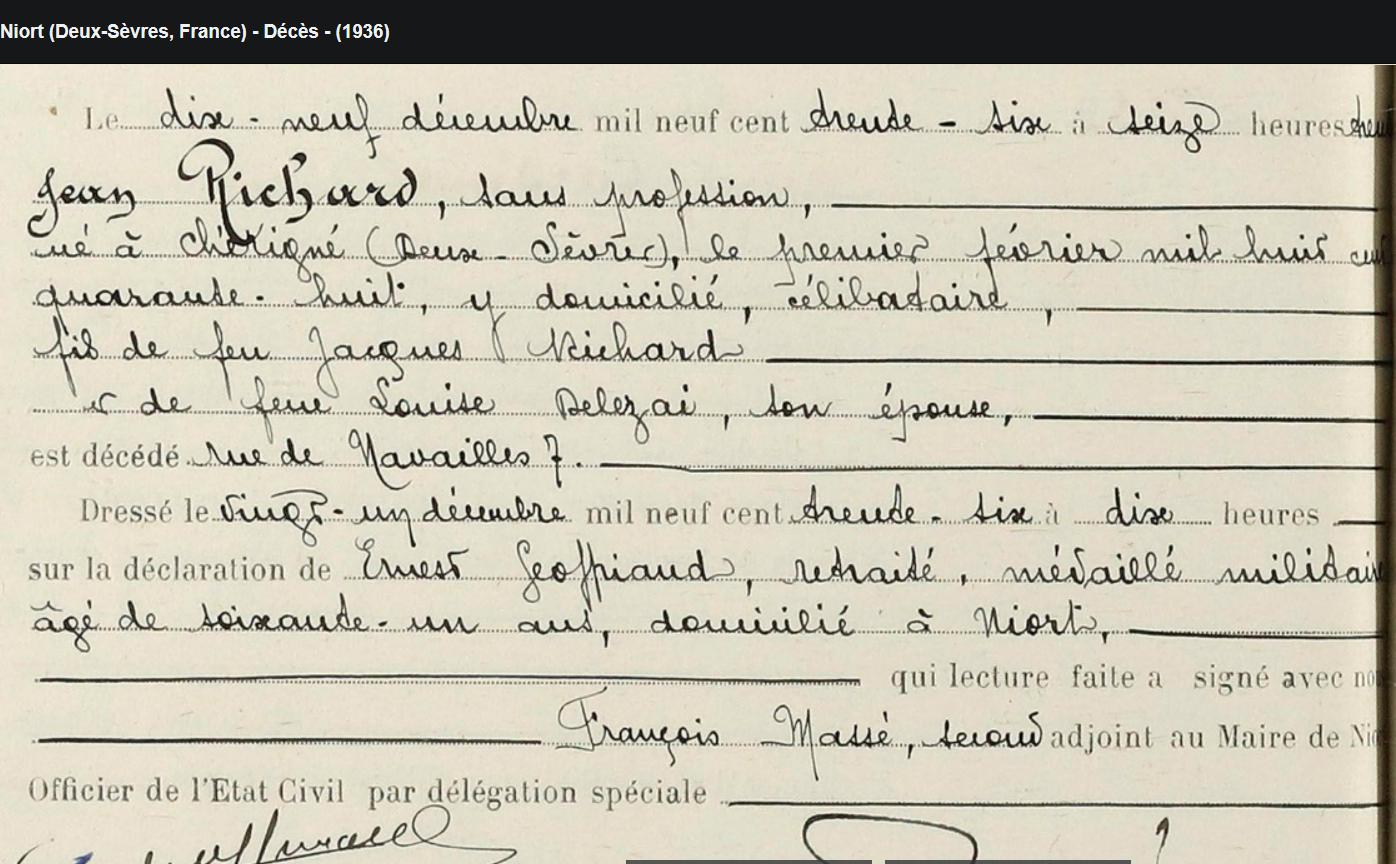 Niort (Deux-Sèvres, France) - Décès - (1936)
Le dix-neuf décembre mil neuf cent trente-six à seize heures
Jean Richard, sans profession,
né à Chérigné (Deux-Sèvres), le premier février mil huit cent
quarante-huit, y domicilié, célibataire,
fils de feu Jacques Richard
et de feue Louise Delezai, son épouse,
est décédé rue de Navailles 7.
Dressé le vingt-un décembre mil neuf cent trente-six à dix heures
sur la déclaration de Ernest Geoffriaud, retraité, médaillé militaire
âgé de soixante-un ans, domicilié à Niort,
qui lecture faite a signé avec
François Massé, second adjoint au Maire de
Officier de l'Etat Civil par délégation spéciale